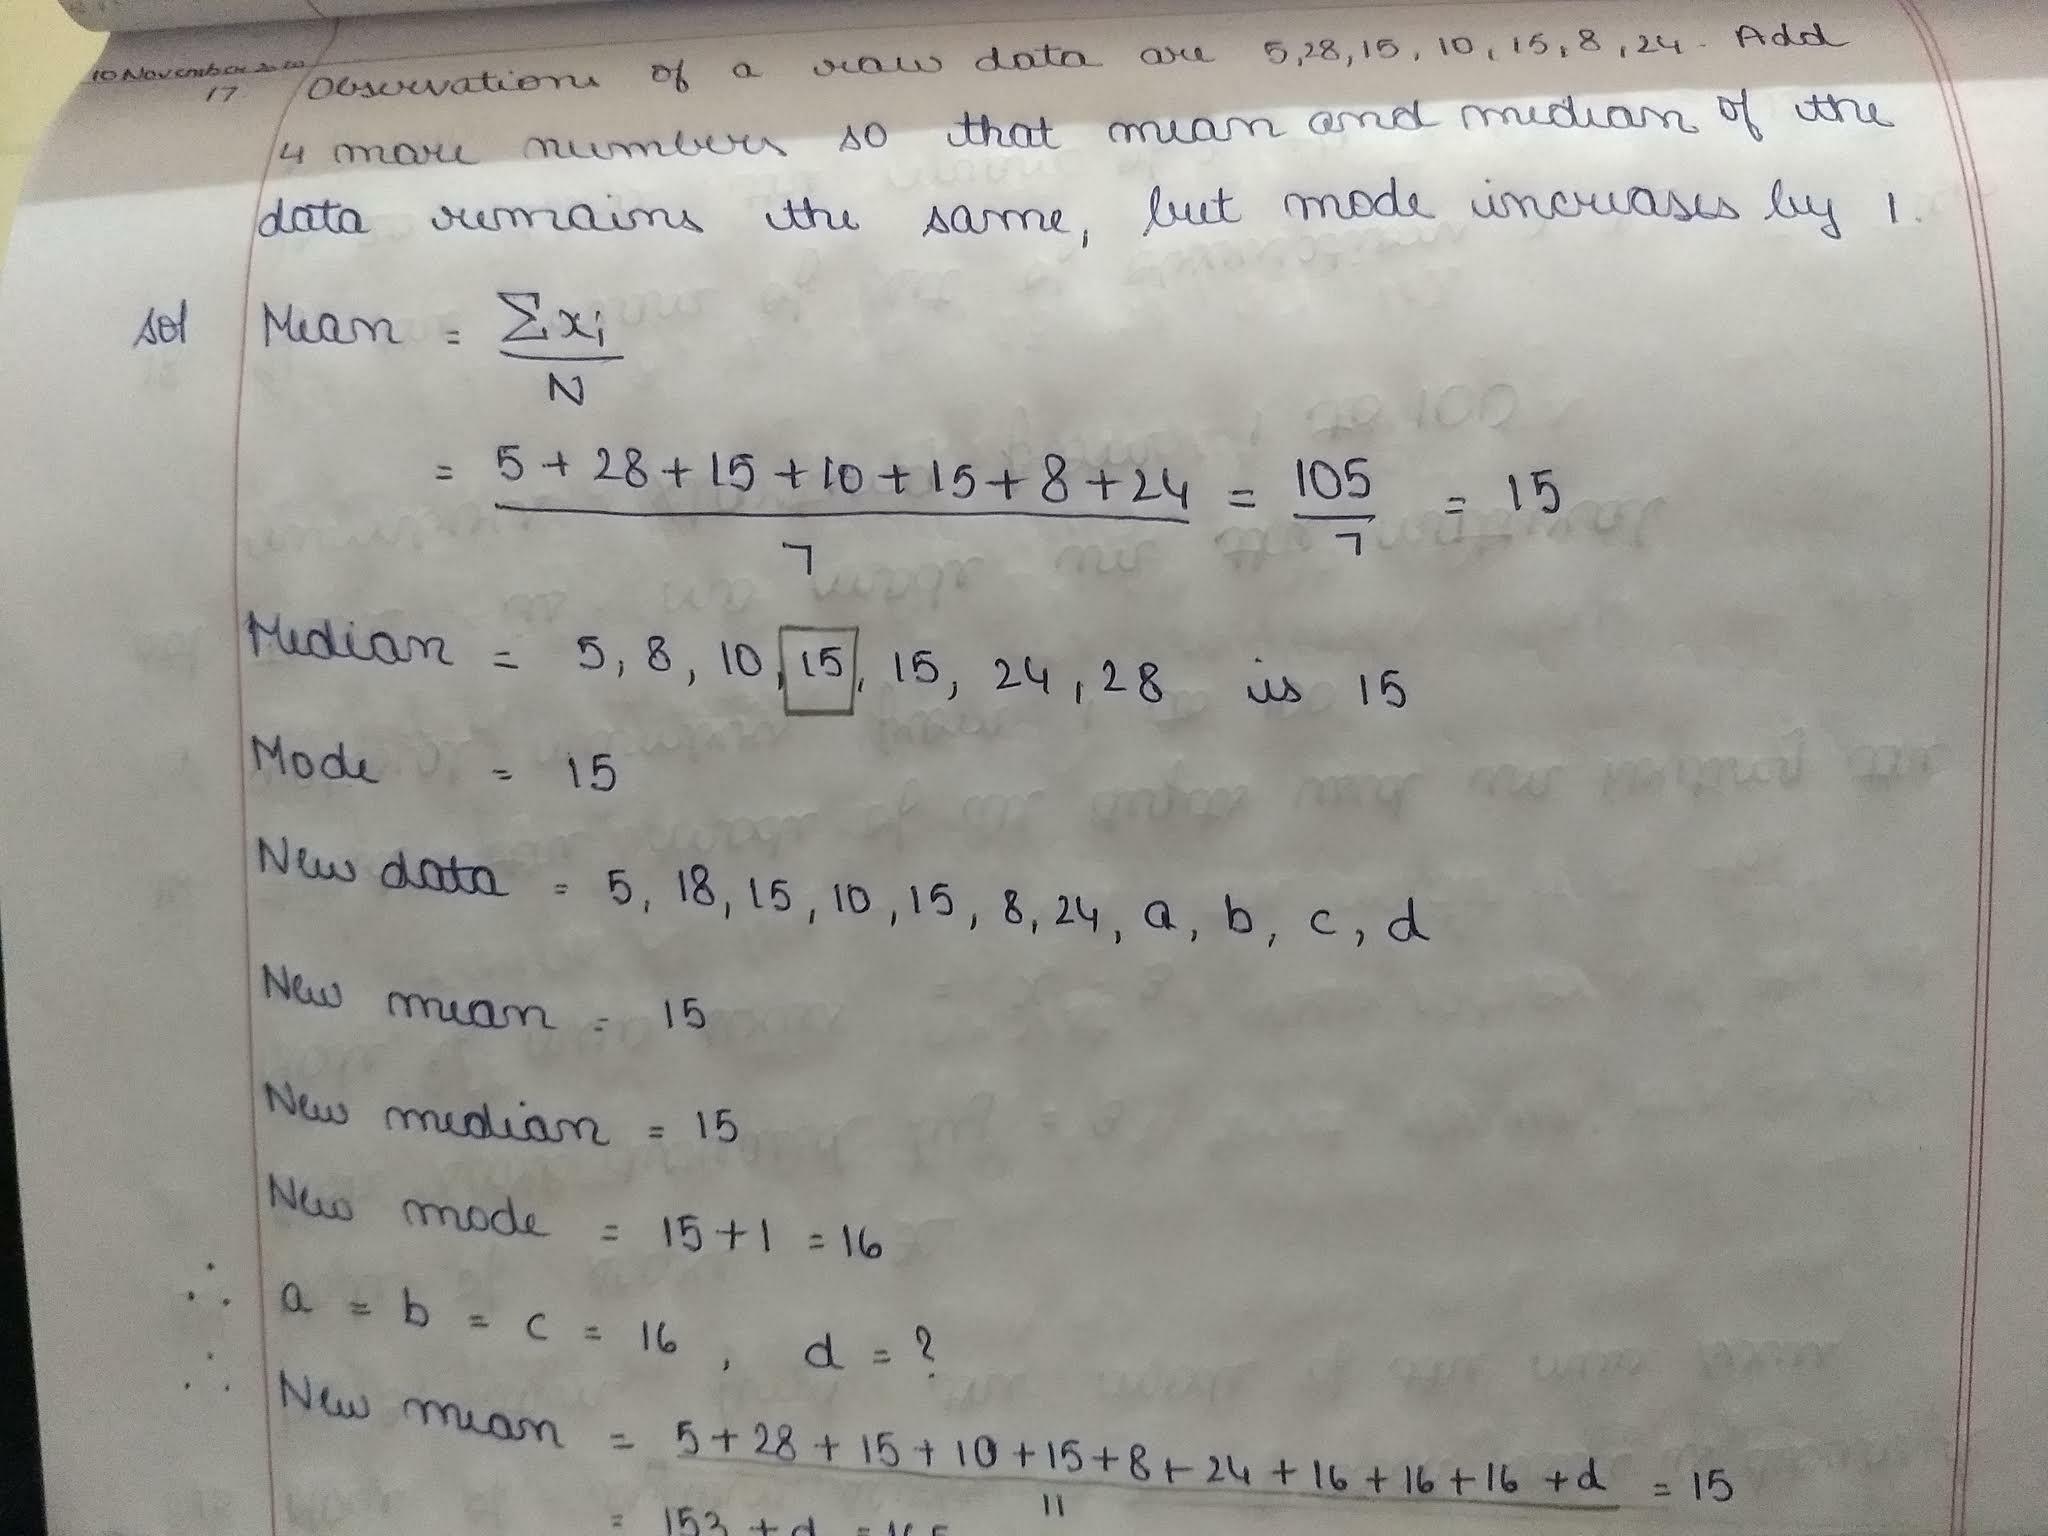 10 November
17 Observations of a raw data are 5,28,15, 10, 15, 8, 24. Add
4 more numbers so that mean and median of the
data remains the same, but mode increases by 1.
sol Mean = Σxi
N
= 5 + 28 + 15 + 10 + 15 + 8 + 24 = 105 = 15
7 7
Median = 5, 8, 10, 15, 15, 24, 28 is 15
Mode = 15
New data = 5, 18, 15, 10, 15, 8, 24, a, b, c, d
New mean = 15
New median = 15
New mode = 15+1 = 16
∴ a = b = c = 16, d = ?
∴ New mean = 5 + 28 + 15 + 10 + 15 + 8 + 24 + 16 + 16 + 16 + d = 15
11
= 153 + d = 165